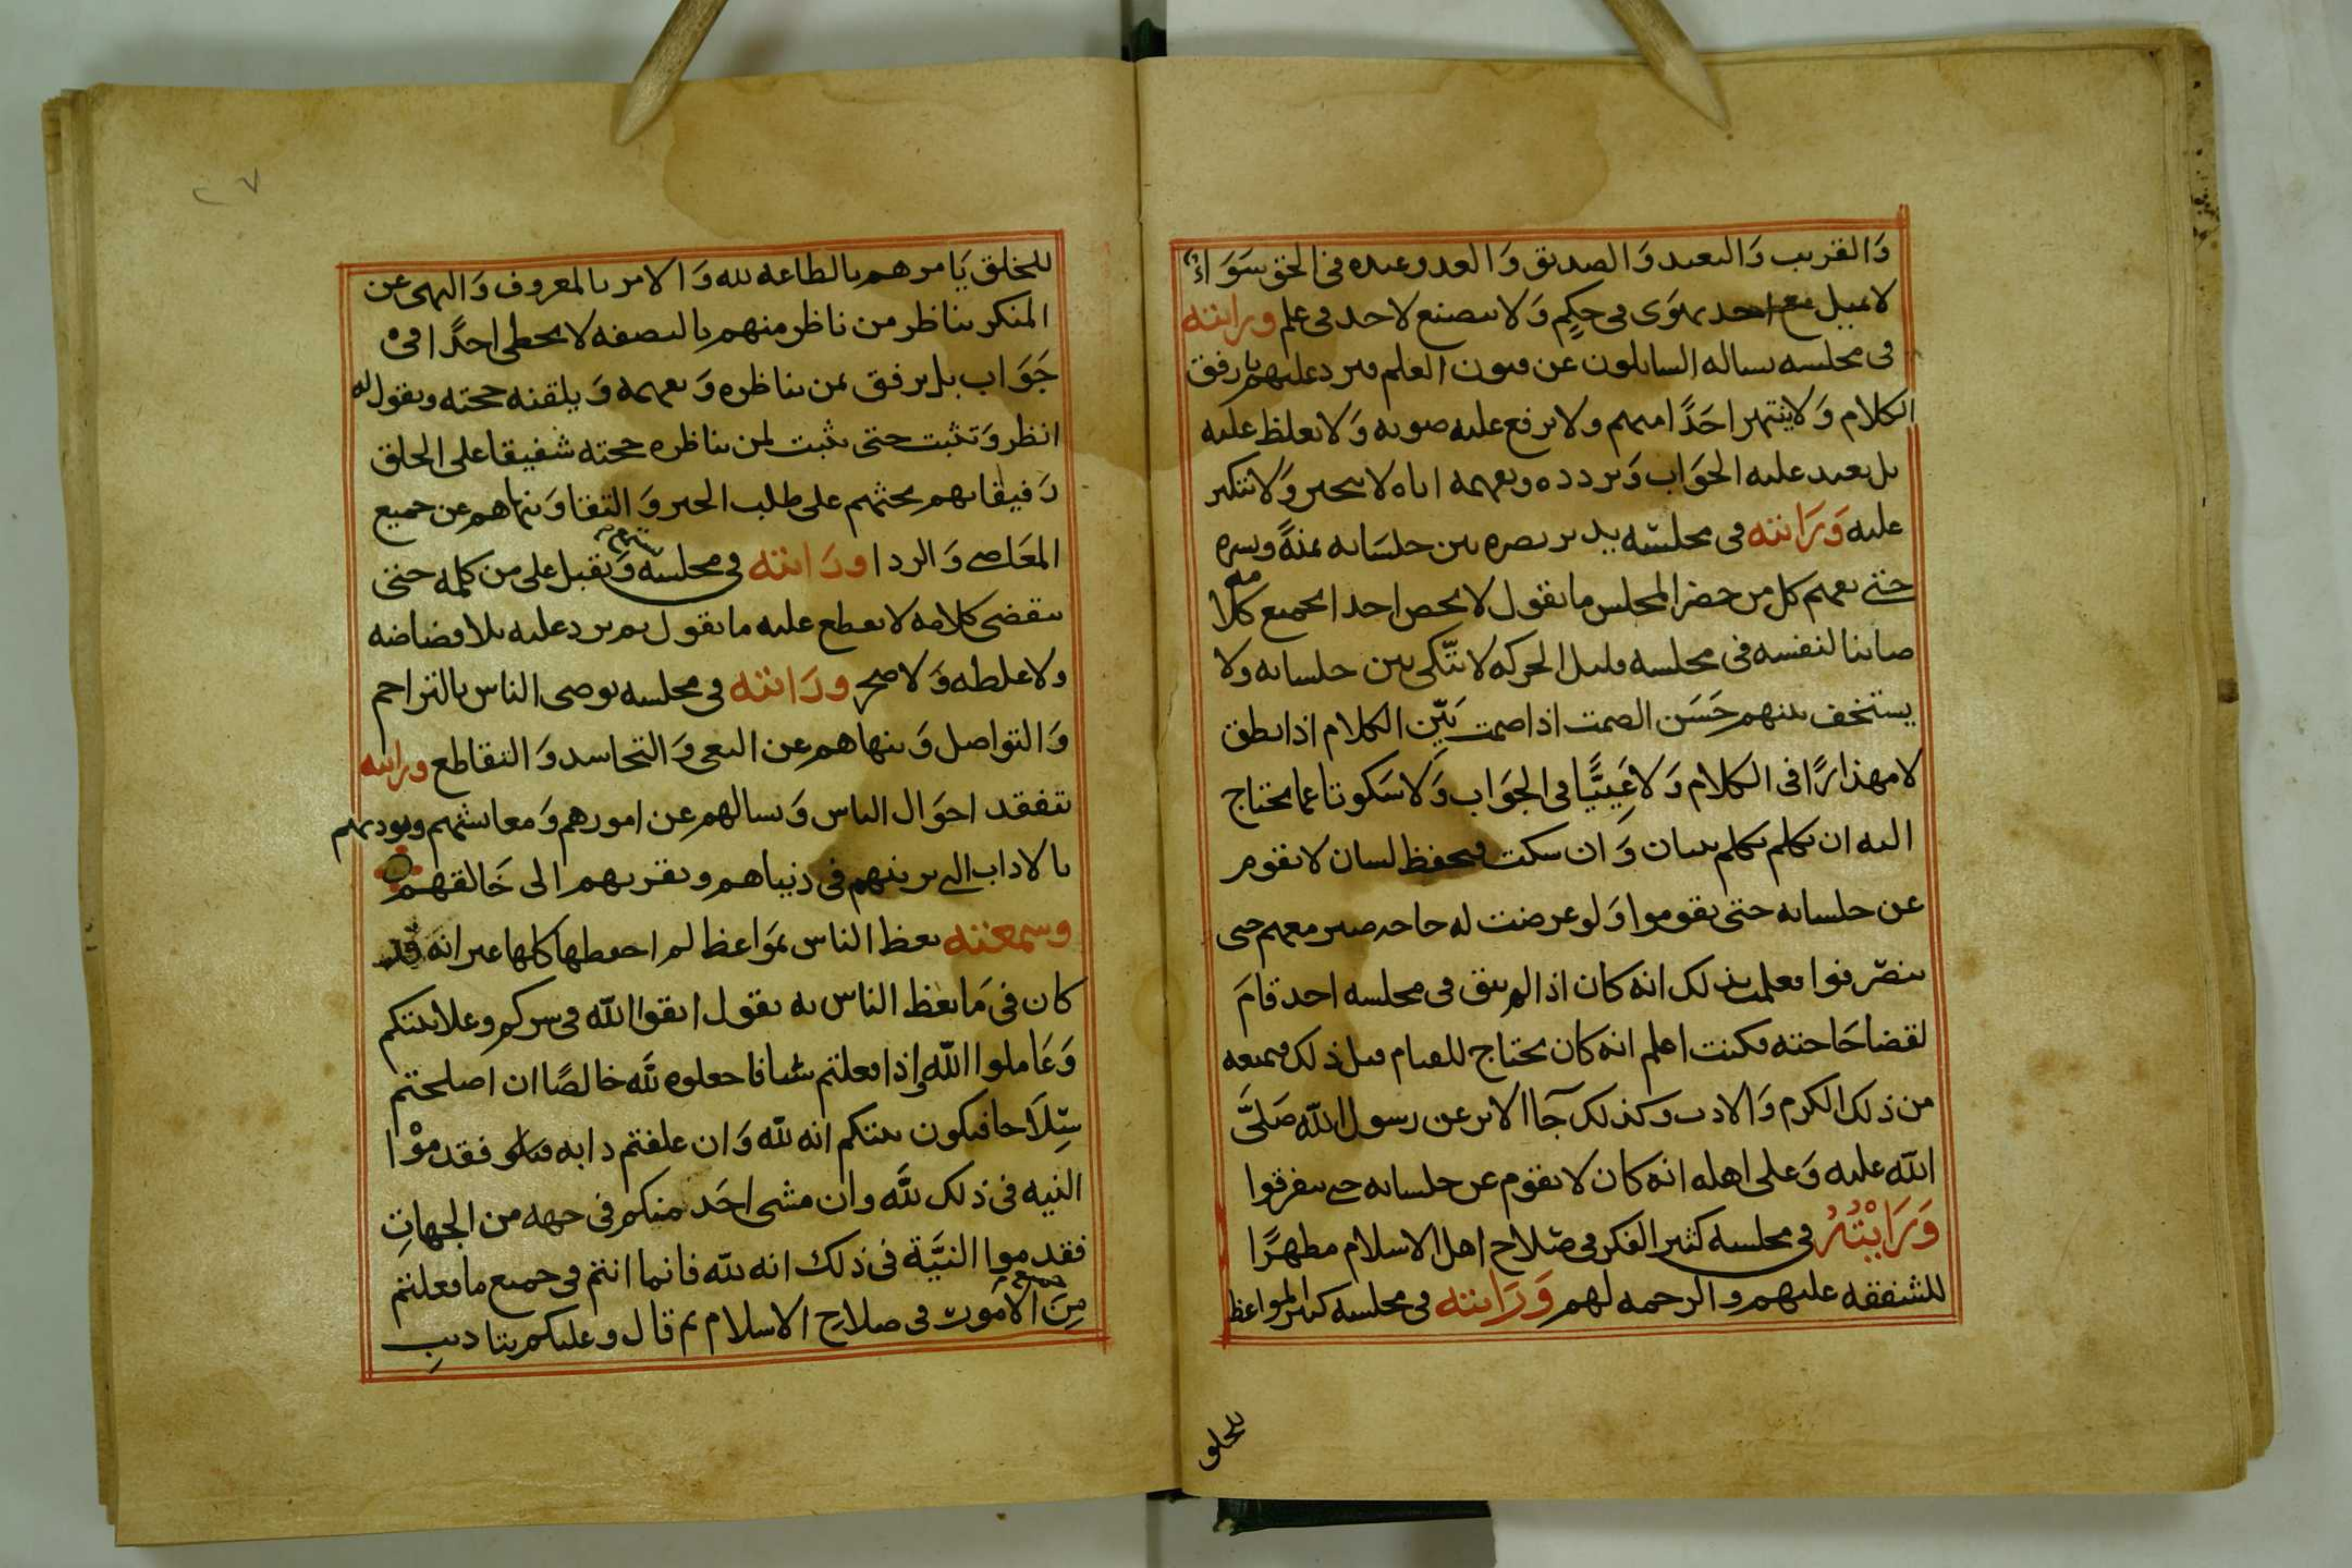 وَالقريب وَالبعيد وَالصديق وَالعدو عنده في الحق سَوَاءً
لا يميل مع احد بهوَى في حكِمٍ وَلا يتصنع لاحد في علم ورايته
في مجلسه يساله السايلون عن فنون العلم فيرد عليهم بارفق
الكلام وَلا ينتهر احَدًا منهم ولا يرفع عليه صوته وَلا يغلظ عليه
بل يعيد عليه الجوَاب وَيردده ويفهمه اياه لا يتجبر وَلا يتكبر
عليه وَرَايته في مجلسّه يدير بصره بين جلسَائه يمنةً ويسره
حتى يفهم كل من حضر المجلس ما يقول لا يخص احد الجميع كلامه
صاينا لنفسه في مجلسه قليل الحركه لا يتّكي بين جلسايه ولا
يستخف بينهم حَسَن الصمت اذا صمت بَيِّن الكلام اذا نطق
لا مهذارًا في الكلام وَلا عَيِيًّا في الجوَاب وَلا سَكوتا عما يحتاج
اليه ان تكلم تكلم ببيان وَان سكت فبحفظ لسان لا يقوم
عن جلسائه حتى يقوموا وَلو عرضت له حاجه صبر معهم حتى
ينصّرفوا فعلمت بذلك انه كان اذا لم يبق في مجلسه احد قامَ
لقضا حَاجته فكنت اعلم انه كان يحتاج للقيام قبل ذلك فيمنعه
من ذلك الكرم وَالادب وكذلك جَآ الاثر عن رسول اللّه صَلَّى
اللّه عليه وَعلى اهله انه كان لا يقوم عن جلسائه حتى يتفرقوا
وَرَايْتُهُ في مجلسه كثير الفكر في صّلاح اهل الاسلام مظهرًا
للشفقه عليهم والرحمه لهم وَرَايته في مجلسه كثير المواعظ
للخلق
للخلق يَامرهم بالطاعه لله وَالامر بالمعروف وَالنهى عن
المنكر يناظر من ناظر منهم بالنصفه لا يخطي احدًا في
جَوَاب بل يرفق بمن يناظره وَيفهمه وَيلقنه حجته ويقول له
انظر وَتثبت حتى يثبت لمن يناظره حجته شفيقا على الخلق
رَفيقا بهم يحثهم على طلب الخير وَالتقا وَينهاهم عن جميع
المعَاصي وَالردا ورَايته في مجلسه وَيقبل على من كلمه حتى
ينقضى كلامه لا يقطع عليه ما يقول ثم يرد عليه بلا فضاضه
ولا غلظه وَلا ضجر ورَايته في مجلسه يوصى الناس بالتراحم
وَالتواصل وَينهاهم عن البغي وَالتحاسد وَالتقاطع ورايته
يتفقد احوَال الناس وَيسالهم عن امورهم وَمعايشهم ويودبهم
بالاداب التي يزينهم في دنياهم ويقربهم الى خَالقهم
وسمعته يعظ الناس بموَاعظ لم احفظها كلها غير انه قد
كان في مَا يعظ الناس به يقول اتقوا اللّه في سركم وعلانيتكم
وَعَاملوا اللّه اذا فعلتم شيا فاجعلوه لله خالصًا ان اصلحتم
سِّلَاحا فيكون نيتكم انه للّه وَان علفتم دابه فقدمُوْا
النيه في ذلك للَّه وان مشى احَد منكم في جهه من الجهاتِ
فقدموا النيَّة في ذلك انه للّه فانما انتم في جميع ما فعلتم
مِنَ الامور في صلاحِ الاسلام ثم قال وعليكم بتاديبِ